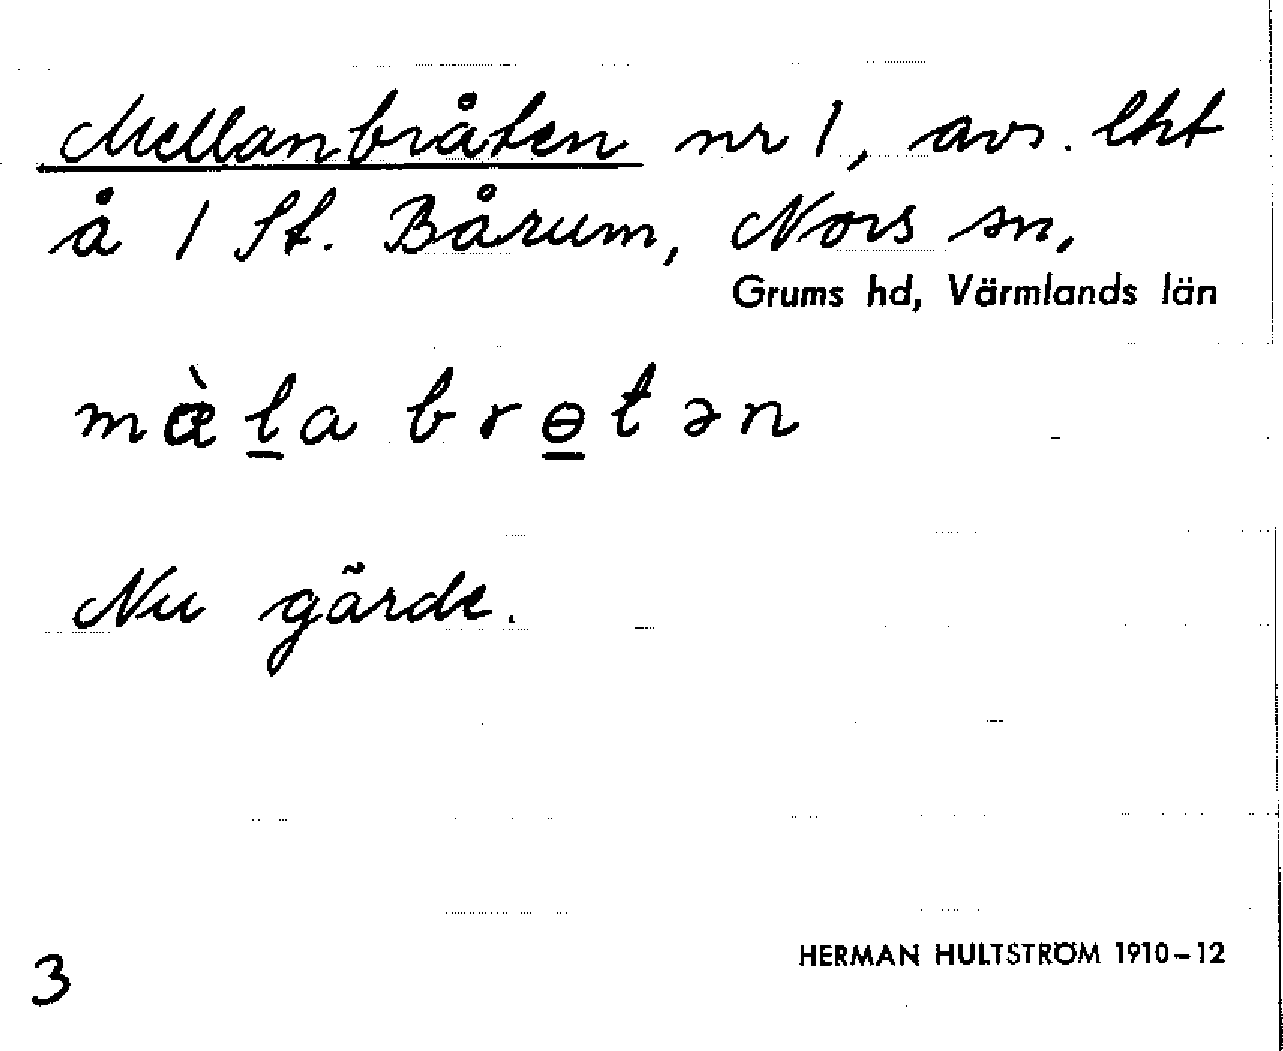 Mellanbråten nr 1, avs. lht
å 1 St. Bårum, Nors sn,
Grums hd, Värmlands län
mæ̀l̲a brɵ̲tən
Nu gärde.
3
HERMAN HULTSTRÖM 1910–12